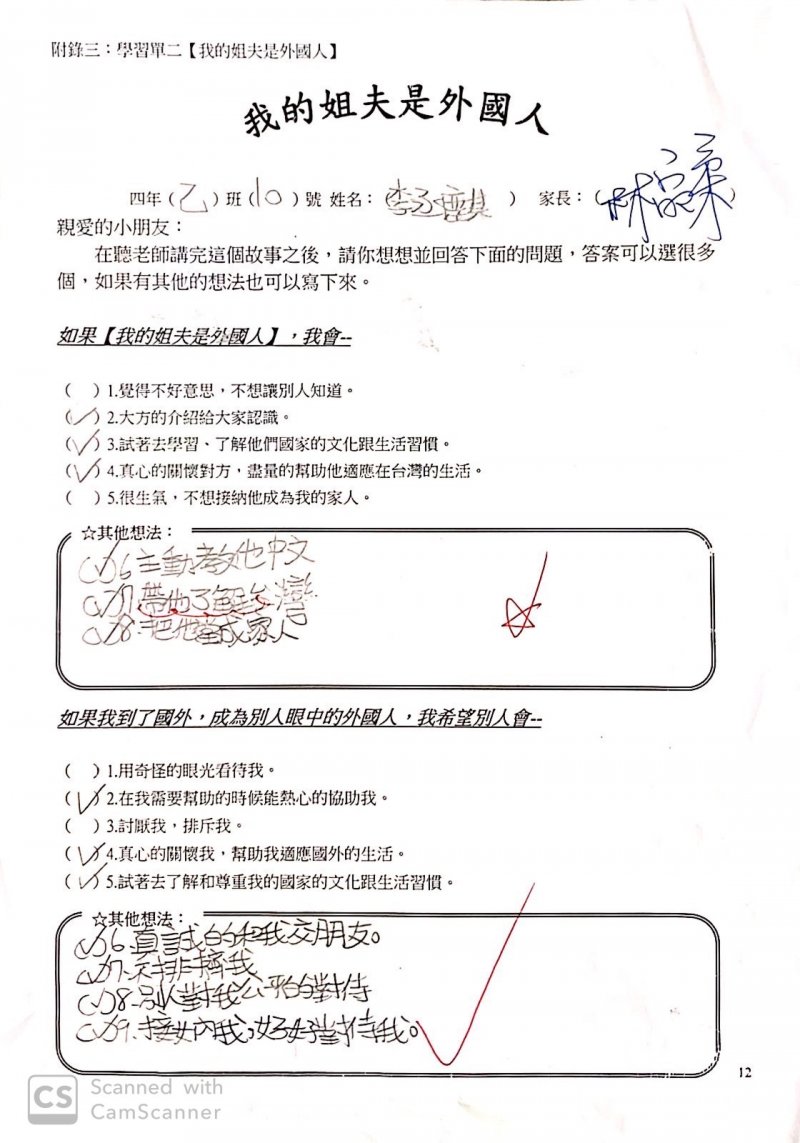 附錄三：學習單二【我的姐夫是外國人】
我的姐夫是外國人
四年（乙）班（10）號 姓名：（李丞）　家長：（林）
親愛的小朋友：
在聽老師講完這個故事之後，請你想想並回答下面的問題，答案可以選很多
個，如果有其他的想法也可以寫下來。
如果【我的姐夫是外國人】，我會--
（ ）1.覺得不好意思，不想讓別人知道。
（✓）2.大方的介紹給大家認識。
（✓）3.試著去學習、了解他們國家的文化跟生活習慣。
（✓）4.真心的關懷對方，盡量的幫助他適應在台灣的生活。
（ ）5.很生氣，不想接納他成為我的家人。
☆其他想法：
（✓）6.主動教他中文
（✓）7.帶他了解台灣
（✓）8.把他當成家人
如果我到了國外，成為別人眼中的外國人，我希望別人會--
（ ）1.用奇怪的眼光看待我。
（✓）2.在我需要幫助的時候能熱心的協助我。
（ ）3.討厭我，排斥我。
（✓）4.真心的關懷我，幫助我適應國外的生活。
（✓）5.試著去了解和尊重我的國家的文化跟生活習慣。
☆其他想法：
（✓）6.真誠的和我交朋友。
（✓）7.不排擠我
（✓）8.別人對我公平的對待
（✓）9.接納我，好好對待我。
12
CS Scanned with
CamScanner